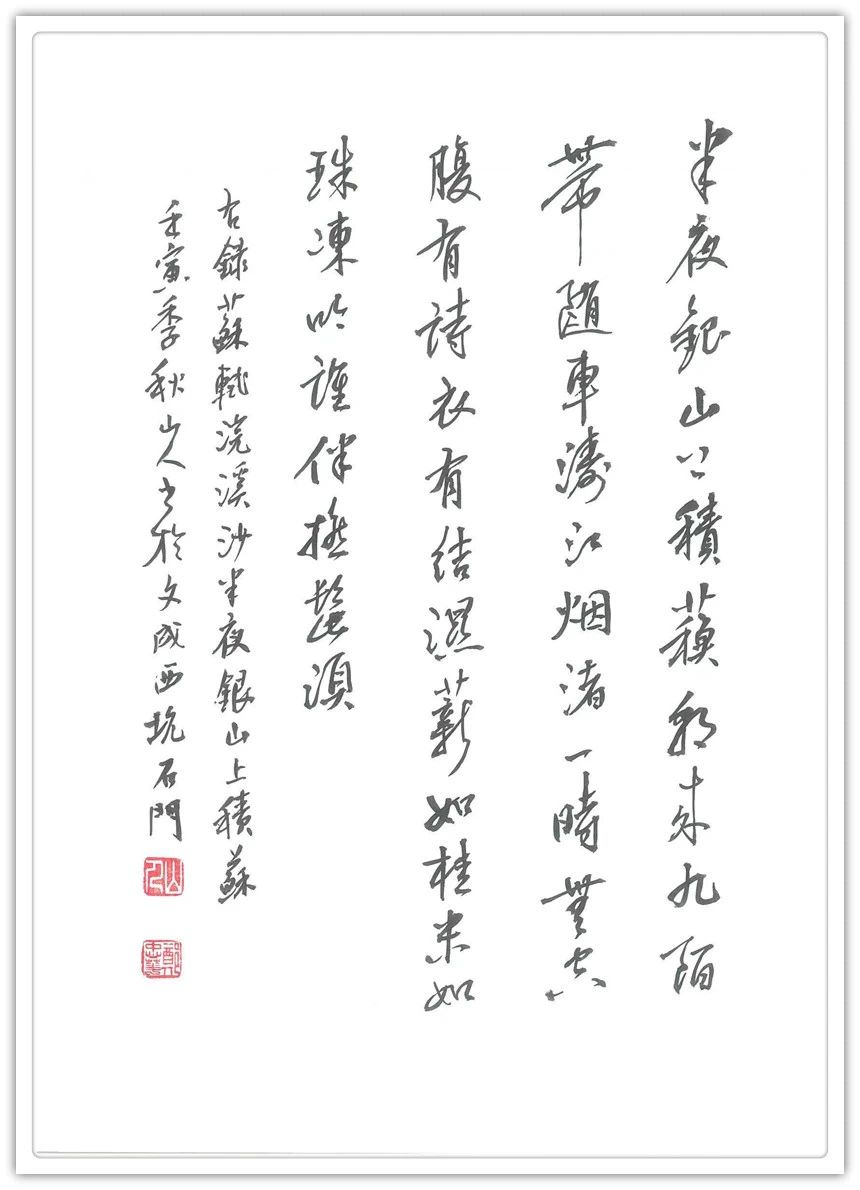 半夜銀山上積蘓朝來九陌
帶隨車濤江烟渚一時無空
腹有詩衣有結濕薪如桂米如
珠凍吟誰伴撚髭須
右錄蘇軾浣溪沙半夜銀山上積蘇
壬寅季秋山人書於文成西坑石門
山人